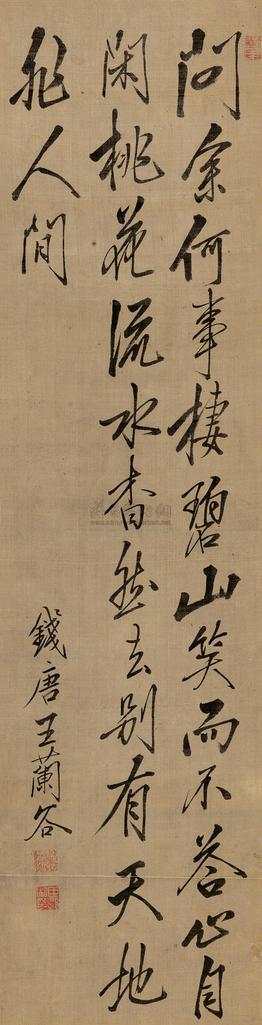 問余何事棲碧山笑而不答心自
閑桃花流水杳然去别有天地
非人間
錢唐王蘭谷